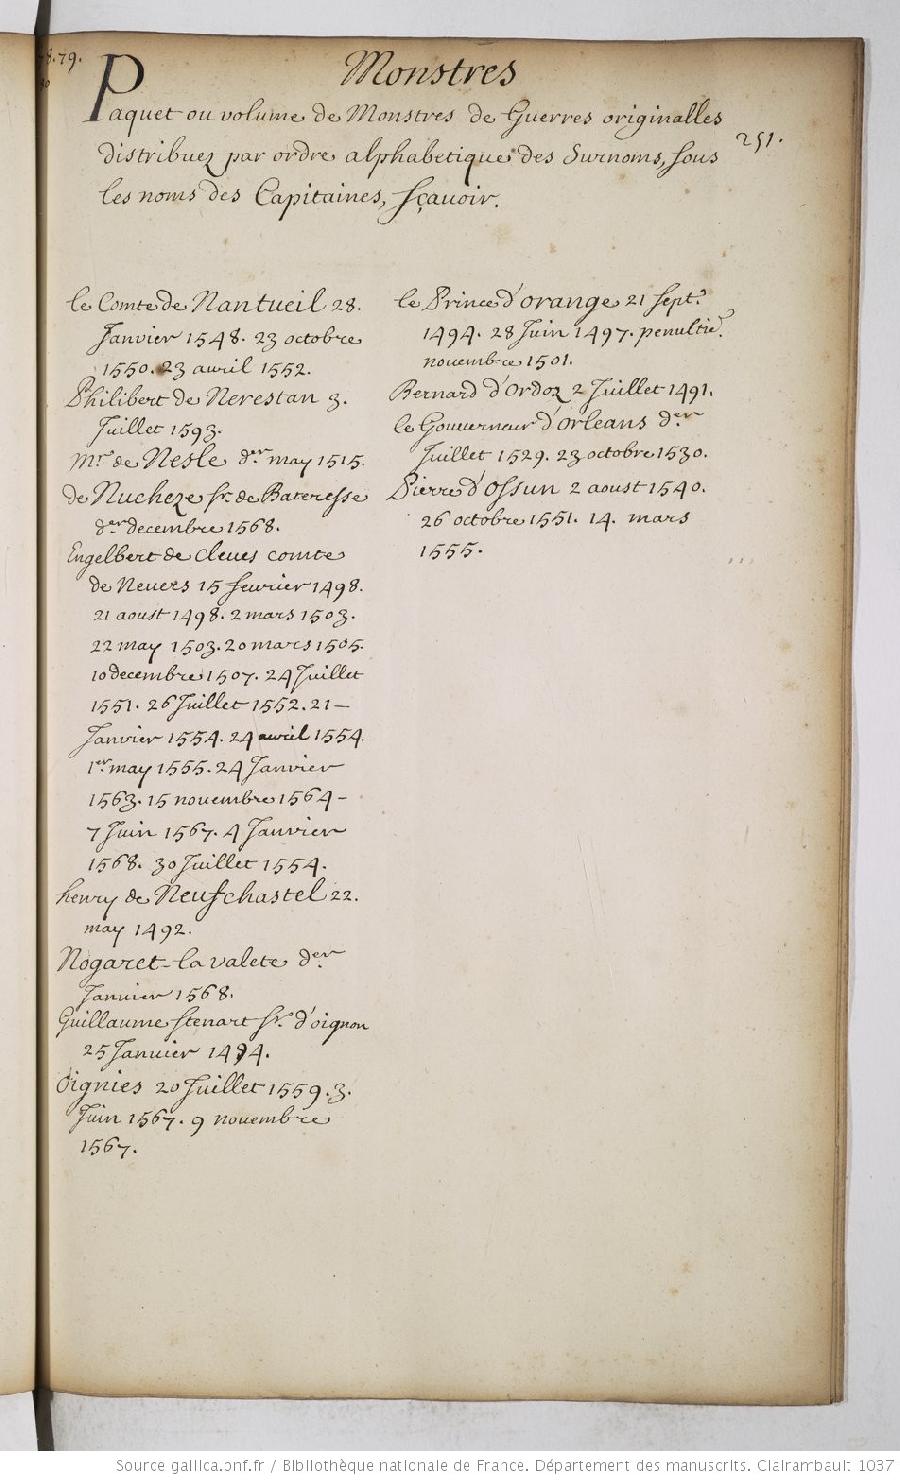 8.79.
Monstres
Paquet ou volume de Monstres de Guerres originalles
251.
distribuez par ordre alphabetique des Surnoms, sous
les noms des Capitaines, sçauoir.
le Comte de Nantueil 28.
Janvier 1548. 23 octobre
1550. 23 avril 1552.
Philibert de Nerestan 3.
Juillet 1593.
Mr. de Nesle der. may 1515
de Nucheze sr. de Bateresse
der. decembre 1568.
Engelbert de cleues comte
de Neuers 15 feurier 1498.
21 aoust 1498. 2 mars 1503.
22 may 1503. 20 mars 1505.
10 decembre 1507. 24 Juillet
1551. 26 Juillet 1552. 21 –
Janvier 1554. 24 avril 1554
1er. may 1555. 24 Janvier
1563. 15 novembre 1564 –
7 Juin 1567. 4 Janvier
1568. 30 Juillet 1554.
henry de Neufchastel 22.
may 1492.
Nogaret-la valete der.
Janvier 1568.
Guillaume stenart sr. d'oignon
25 Janvier 1494.
Oignies 20 Juillet 1559. 3.
Juin 1567. 9 novembre
1567.
le Prince d'orange 21 Sept.e
1494. 28 Juin 1497. penultie.
novembre 1501.
Bernard d'Ordoz 2 Juillet 1491.
le Gouuerneur d'Orleans der.
Juillet 1529. 23 octobre 1530.
Pierre d'Ossun 2 aoust 1540.
26 octobre 1551. 14. mars
1555.
Source gallica.bnf.fr / Bibliothèque nationale de France. Département des manuscrits. Clairambault 1037